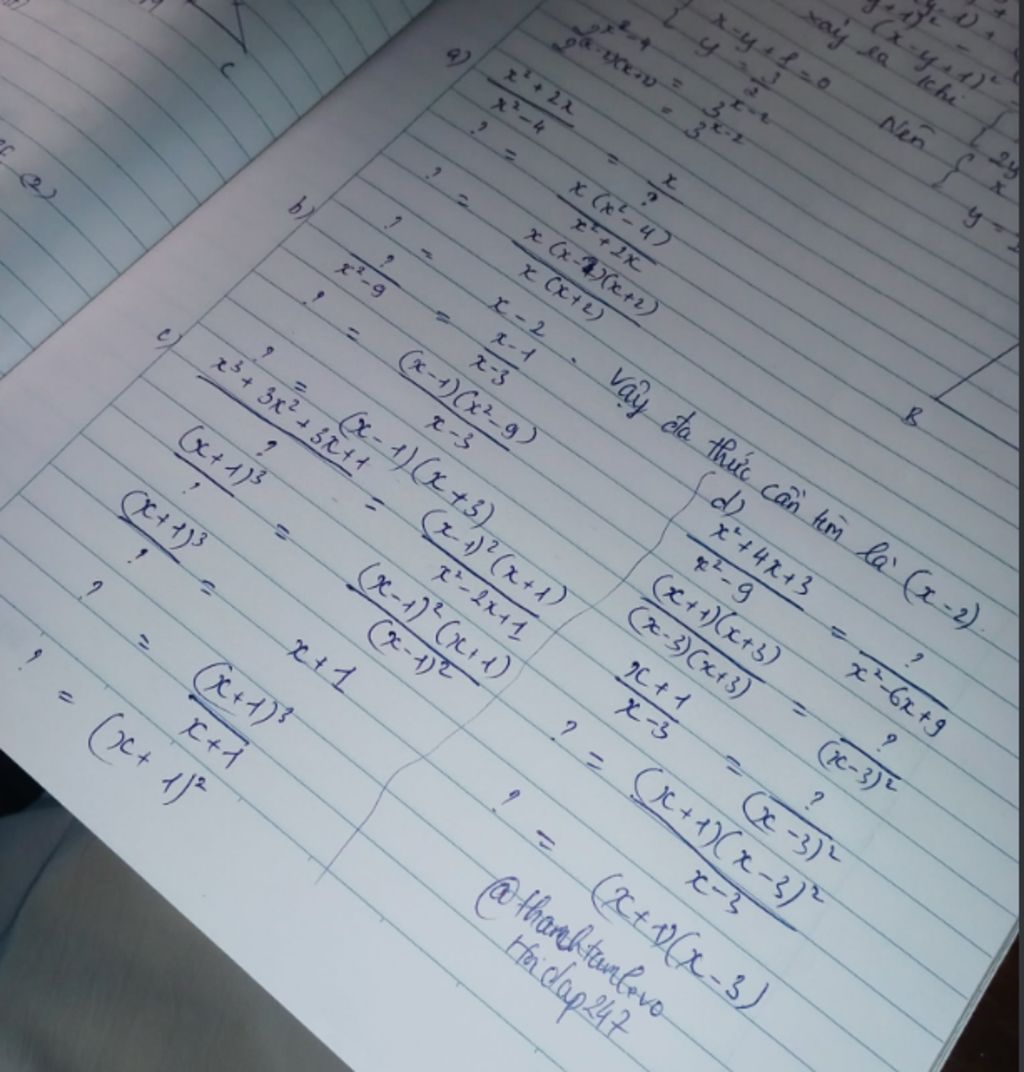 C
(2)
x-y+1=0
y = 3/2
xảy ra khi
(x-y+1)²
Nên
x²-4
2(x-2)(x+2) = 3x-2
= 3x-2
a) (x²+2x)/(x²-4) = x/?
? = x(x²-4)/(x²+2x)
? = x(x-2)(x+2)/(x(x+2))
? = x-2. Vậy đa thức cần tìm là (x-2).
B
b) ?/(x²-9) = (x-1)/(x-3)
? = (x-1)(x²-9)/(x-3)
? = (x-1)(x+3)
c) (x³+3x²+3x+1)/? = (x-1)²(x+1)/(x²-2x+1)
(x+1)³/? = (x-1)²(x+1)/(x-1)²
(x+1)³/? = x+1
? = (x+1)³/(x+1)
? = (x+1)²
d) (x²+4x+3)/(x²-9) = ?/(x²-6x+9)
(x+1)(x+3)/((x-3)(x+3)) = ?/(x-3)²
(x+1)/(x-3) = ?/(x-3)²
? = (x+1)(x-3)²/(x-3)
? = (x+1)(x-3)
@thanhtamlevo
Hoidap247